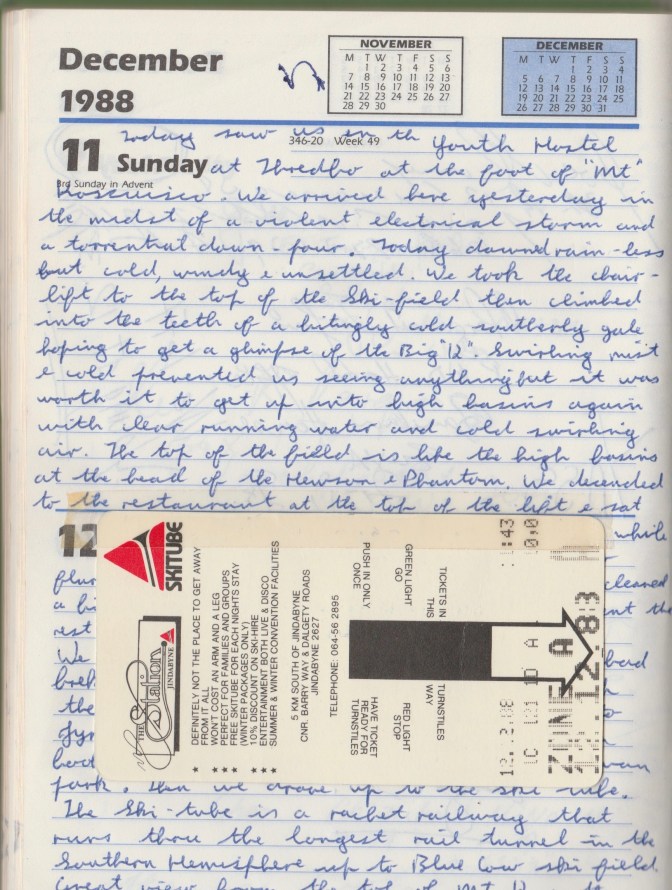 December
1988
NOVEMBER
M T W T F S S
1 2 3 4 5 6
7 8 9 10 11 12 13
14 15 16 17 18 19 20
21 22 23 24 25 26 27
28 29 30
DECEMBER
M T W T F S S
1 2 3 4
5 6 7 8 9 10 11
12 13 14 15 16 17 18
19 20 21 22 23 24 25
26 27 28 29 30 31
346-20 Week 49
11 Sunday
3rd Sunday in Advent
Today saw us in th Youth Hostel
at Thredbo at the foot of "Mt"
Kosciusco. We arrived here yesterday in
the midst of a violent electrical storm and
a torrential down-pour. Today dawned rain-less
but cold, windy & unsettled. We took the chair-
lift to the top of the Ski-field then climbed
into the teeth of a bitingly cold southerly gale
hoping to get a glimpse of the Big "K". Swirling mist
& cold prevented us seeing anything but it was
worth it to get up into high basins again
with clear running water and cold swirling
air. The top of the field is like the high basins
at the head of the Hewson & Phantom. We decended
to the restaurant at the top of the lift & sat
12
while
cleared
a
the
rest
We
the
park. Then we drove up to the ski tube.
The Ski-tube is a rachet railway that
runs thru the longest rail tunnel in the
Southern Hemisphere up to Blue Cow ski field.
Great view from the top of Mt
SKITUBE
THE Station
JINDABYNE
★ DEFINITELY NOT THE PLACE TO GET AWAY
FROM IT ALL
★ WON'T COST AN ARM AND A LEG
★ PERFECT FOR FAMILIES AND GROUPS
★ FREE SKITUBE FOR EACH NIGHTS STAY
(WINTER PACKAGES ONLY)
★ 10% DISCOUNT ON SKI-HIRE
★ ENTERTAINMENT BOTH LIVE & DISCO
★ SUMMER & WINTER CONVENTION FACILITIES
5 KM SOUTH OF JINDABYNE
CNR. BARRY WAY & DALGETY ROADS
JINDABYNE 2627
TELEPHONE: 064-56 2895
PUSH IN ONLY
ONCE
GREEN LIGHT
GO
TICKETS IN
THIS
HAVE TICKET
READY FOR
TURNSTILES
RED LIGHT
STOP
TURNSTILES
WAY
ZONE A
12.83